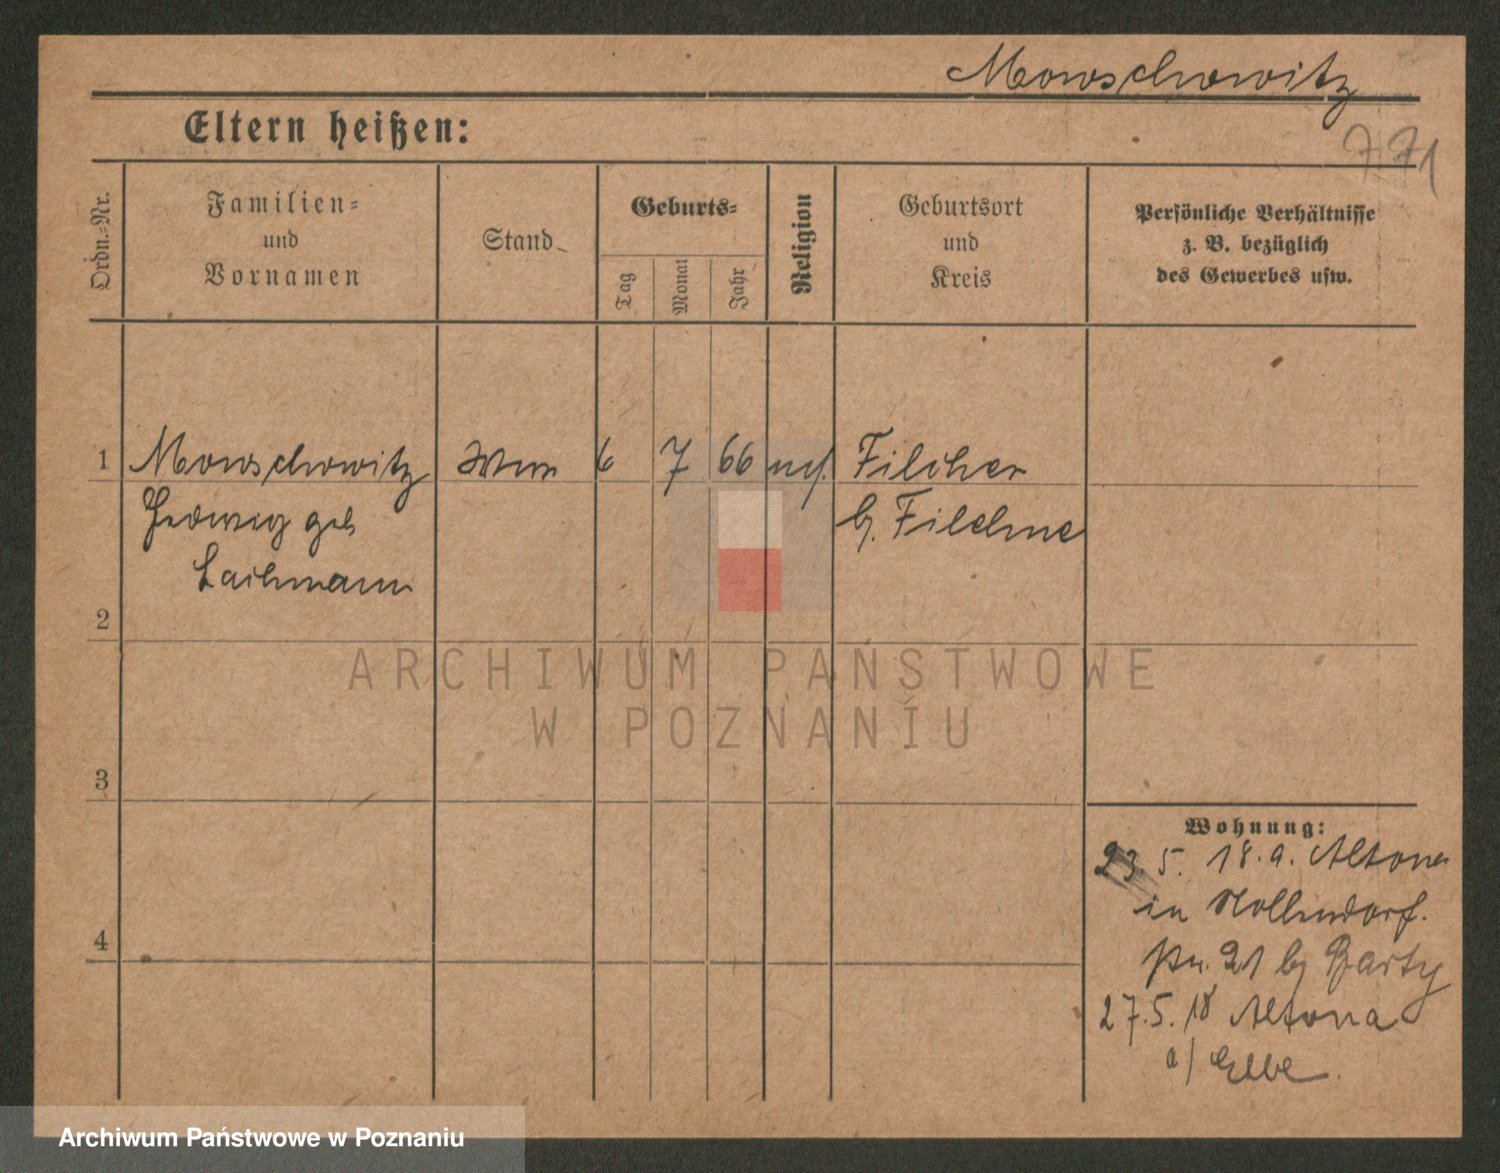 Mowschowitz
771
Eltern heißen:
Ordn.-Nr.
Familien-
und
Vornamen
Stand
Geburts-
Tag
Monat
Jahr
Religion
Geburtsort
und
Kreis
Persönliche Verhältnisse
z. B. bezüglich
des Gewerbes usw.
1 Mowschowitz 6 7 66 Filehne
Hedwig geb
b. Filehne
Lachmann
2
3
4
Wohnung:
23. 5. 18. a. Altona
in Nollendorf.
21 b Barty
27. 5. 18 Altona
a/ Elbe
ARCHIWUM PAŃSTWOWE
W POZNANIU
Archiwum Państwowe w Poznaniu